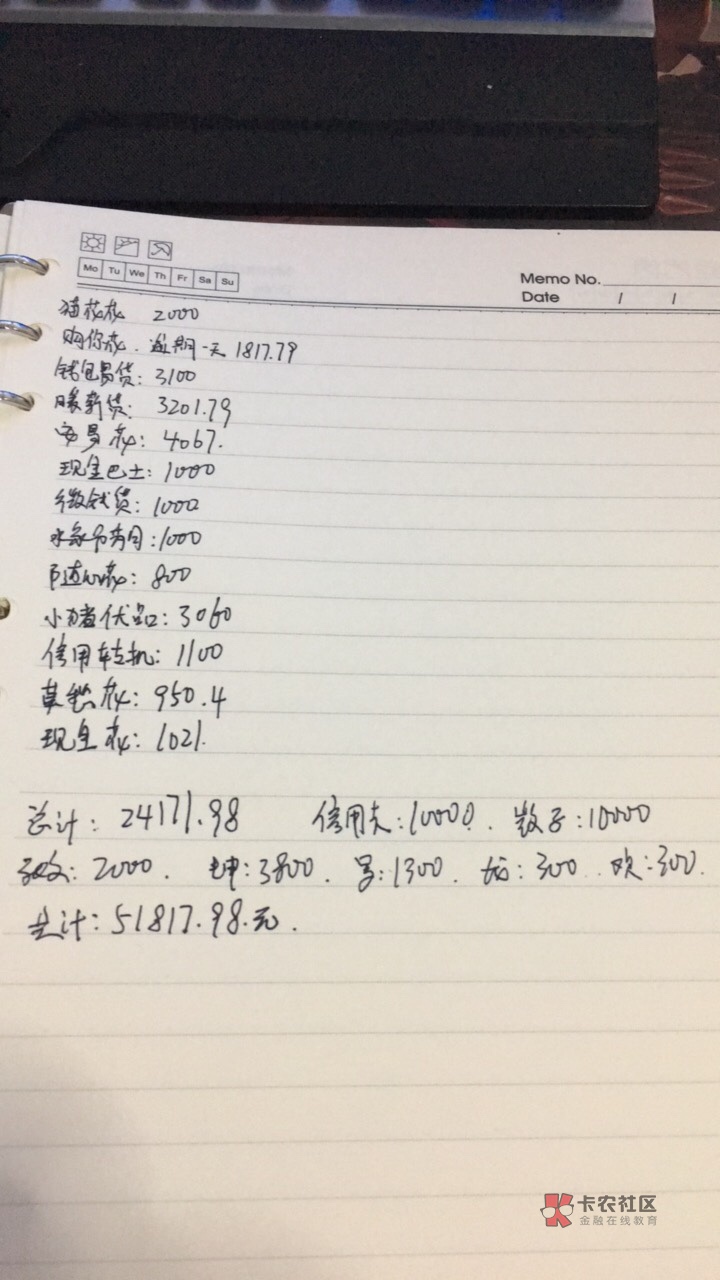 Mo Tu We Th Fr Sa Su
Memo No.
Date / /
2000
购你花. 逾期一天 1817.79
钱包易贷: 3100
暖薪贷: 3201.79
安易花: 4067.
现金巴士: 1000
微钱贷: 1000
水象分期: 1000
: 800
小猪优品: 3060
信用转机: 1100
草莓花: 950.4
现金花: 1021.
总计: 24171.98 信用卡: 10000. 数子: 10000
: 2000. 坤: 3800. 号: 1300. : 300. 欢: 300.
共计: 51817.98.元.
卡农社区
金融在线教育